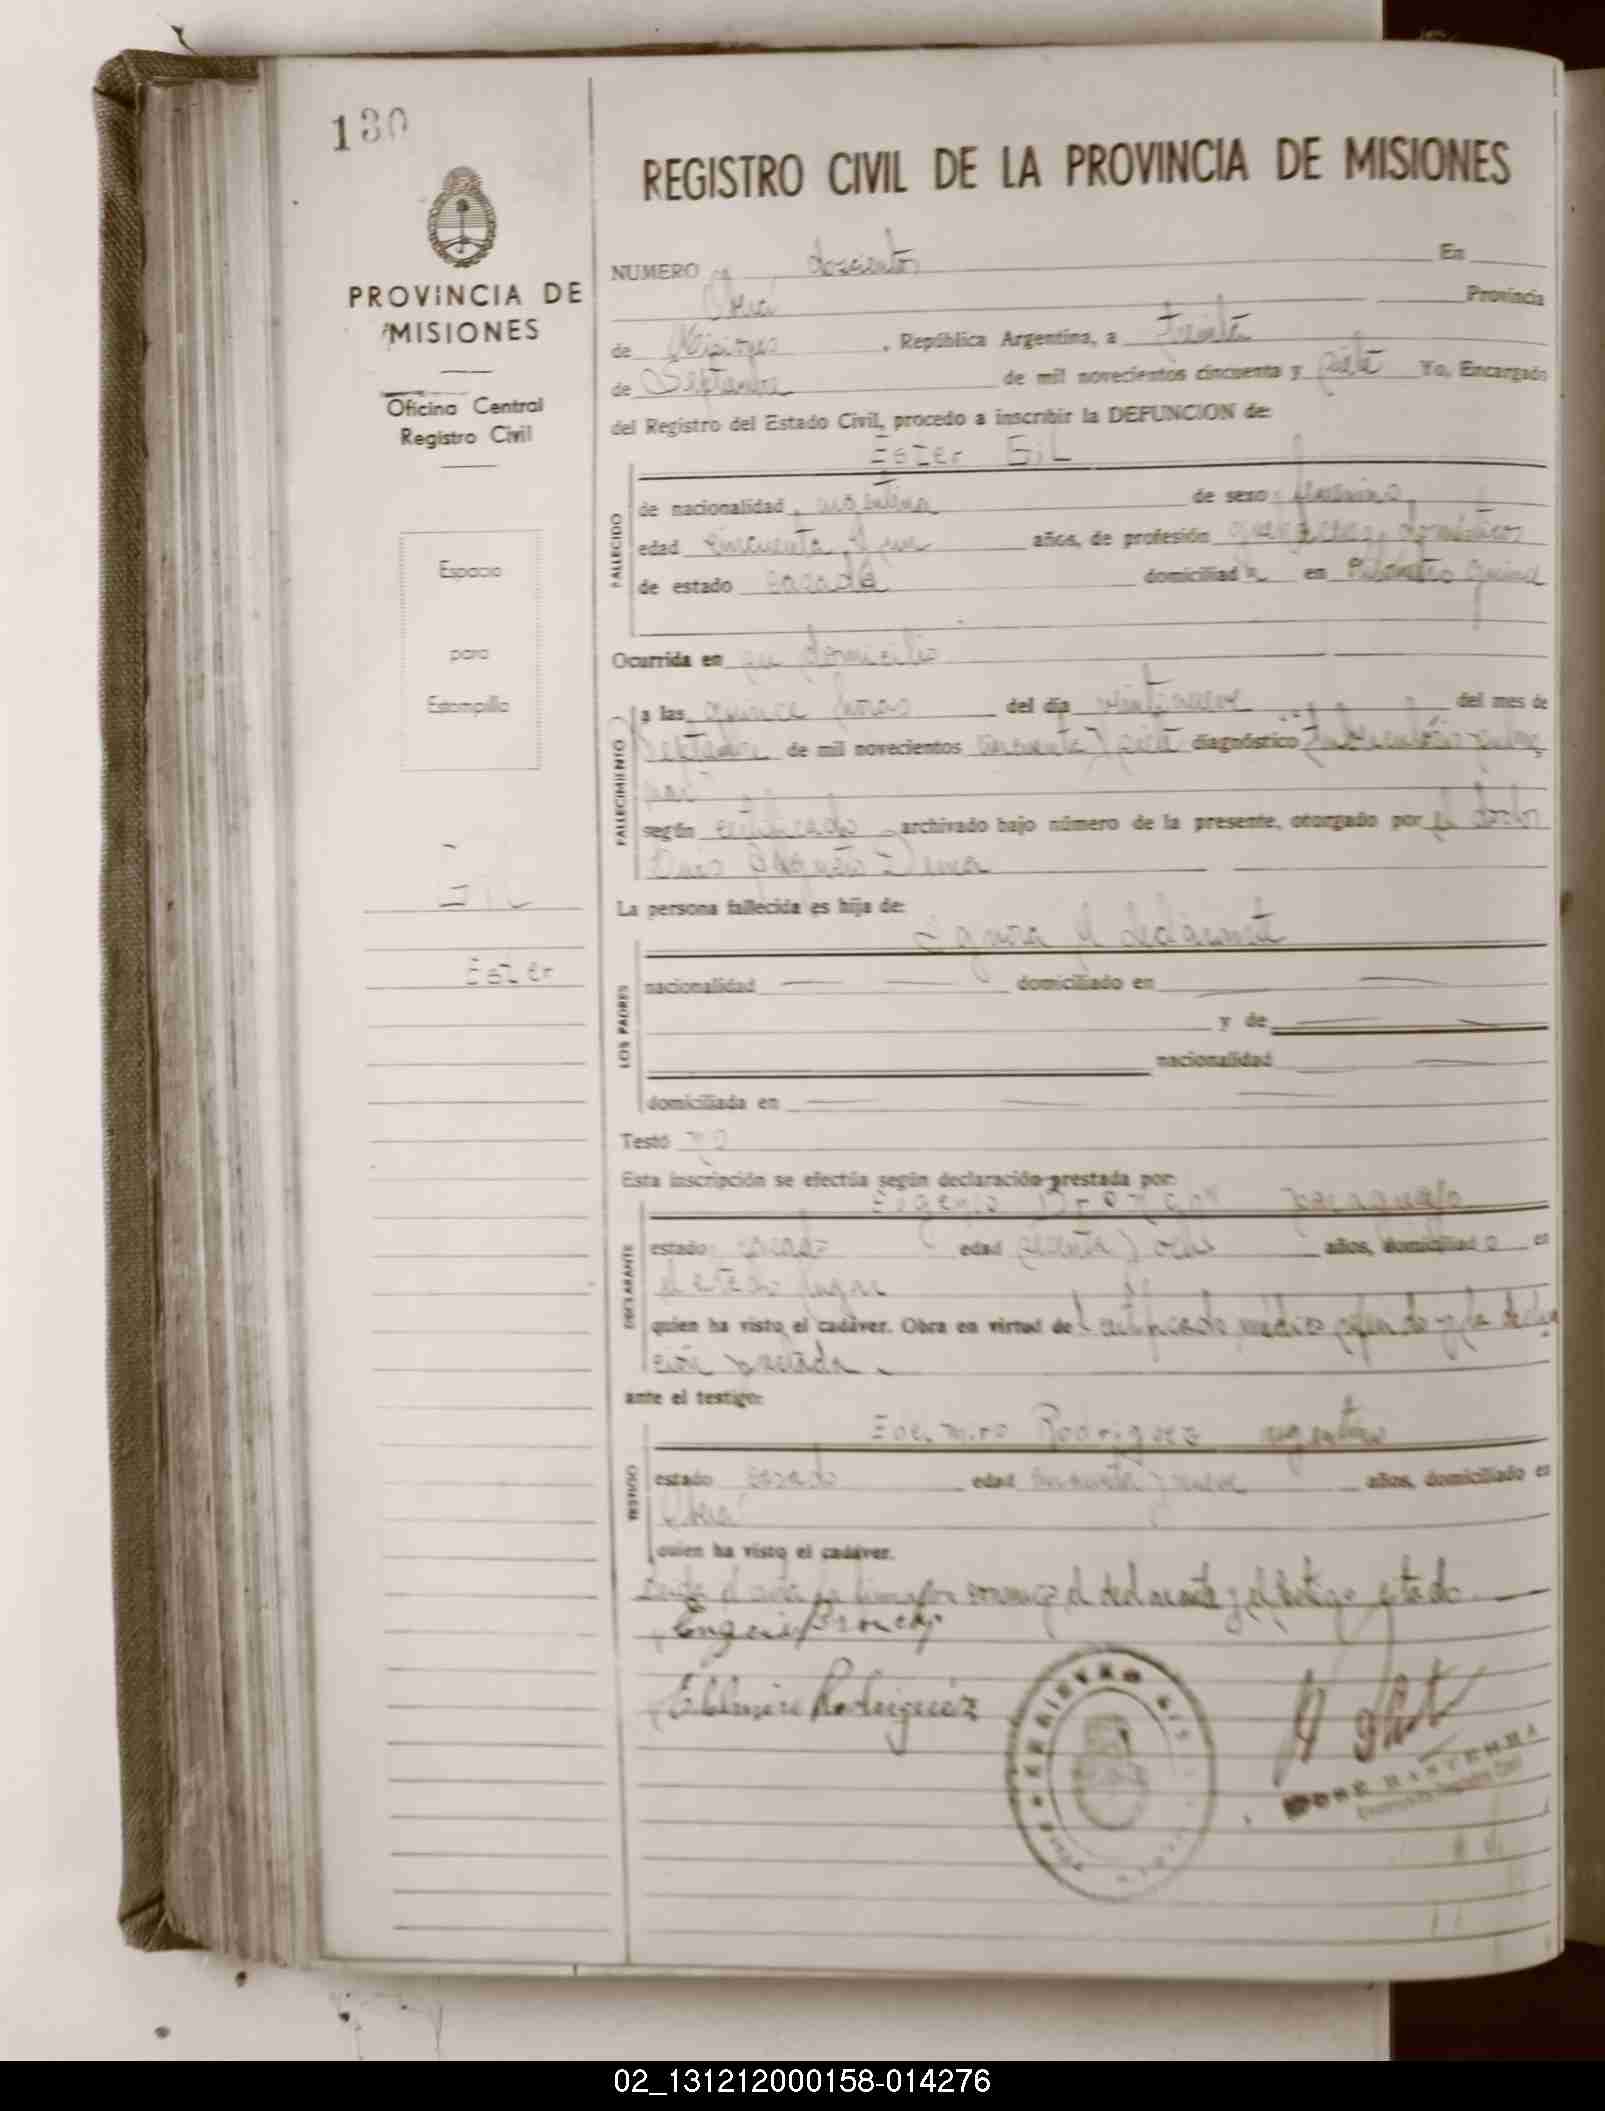 130
REGISTRO CIVIL DE LA PROVINCIA DE MISIONES
PROVINCIA DE
MISIONES
Oficina Central
Registro Civil
Espacio
para
Estampilla
GIL
Ester
NUMERO doscientos En
Oberá Provincia
de Misiones, República Argentina, a treinta
de Septiembre de mil novecientos cincuenta y siete Yo, Encargado
del Registro del Estado Civil, procedo a inscribir la DEFUNCION de:
Ester Gil
FALLECIDO
de nacionalidad argentina de sexo femenino
edad cincuenta y un años, de profesión quehaceres domésticos
de estado casada domiciliada en Kilómetro quince
Ocurrida en su domicilio
FALLECIMIENTO
a las quince horas del día veintinueve del mes de
Septiembre de mil novecientos cincuenta y siete diagnóstico Tuberculosis pulmo
nar
según certificado archivado bajo número de la presente, otorgado por el doctor
La persona fallecida es hija de:
Ignora el declarante
LOS PADRES
nacionalidad domiciliado en
y de
nacionalidad
domiciliada en
Testó no
Esta inscripción se efectúa según declaración prestada por:
Eugenio paraguayo
DECLARANTE
estado casado edad sesenta y ocho años, domiciliado en
el citado lugar
quien ha visto el cadáver. Obra en virtud del certificado médico referido y la declara
ción prestada.
ante el testigo:
Edelmiro Rodriguez argentino
TESTIGO
estado casado edad cincuenta y nueve años, domiciliado en
Oberá
quien ha visto el cadáver.
Leída el acta la firman conmigo el declarante y el testigo citado
Eugenio
Edelmiro Rodriguez
02_131212000158-014276